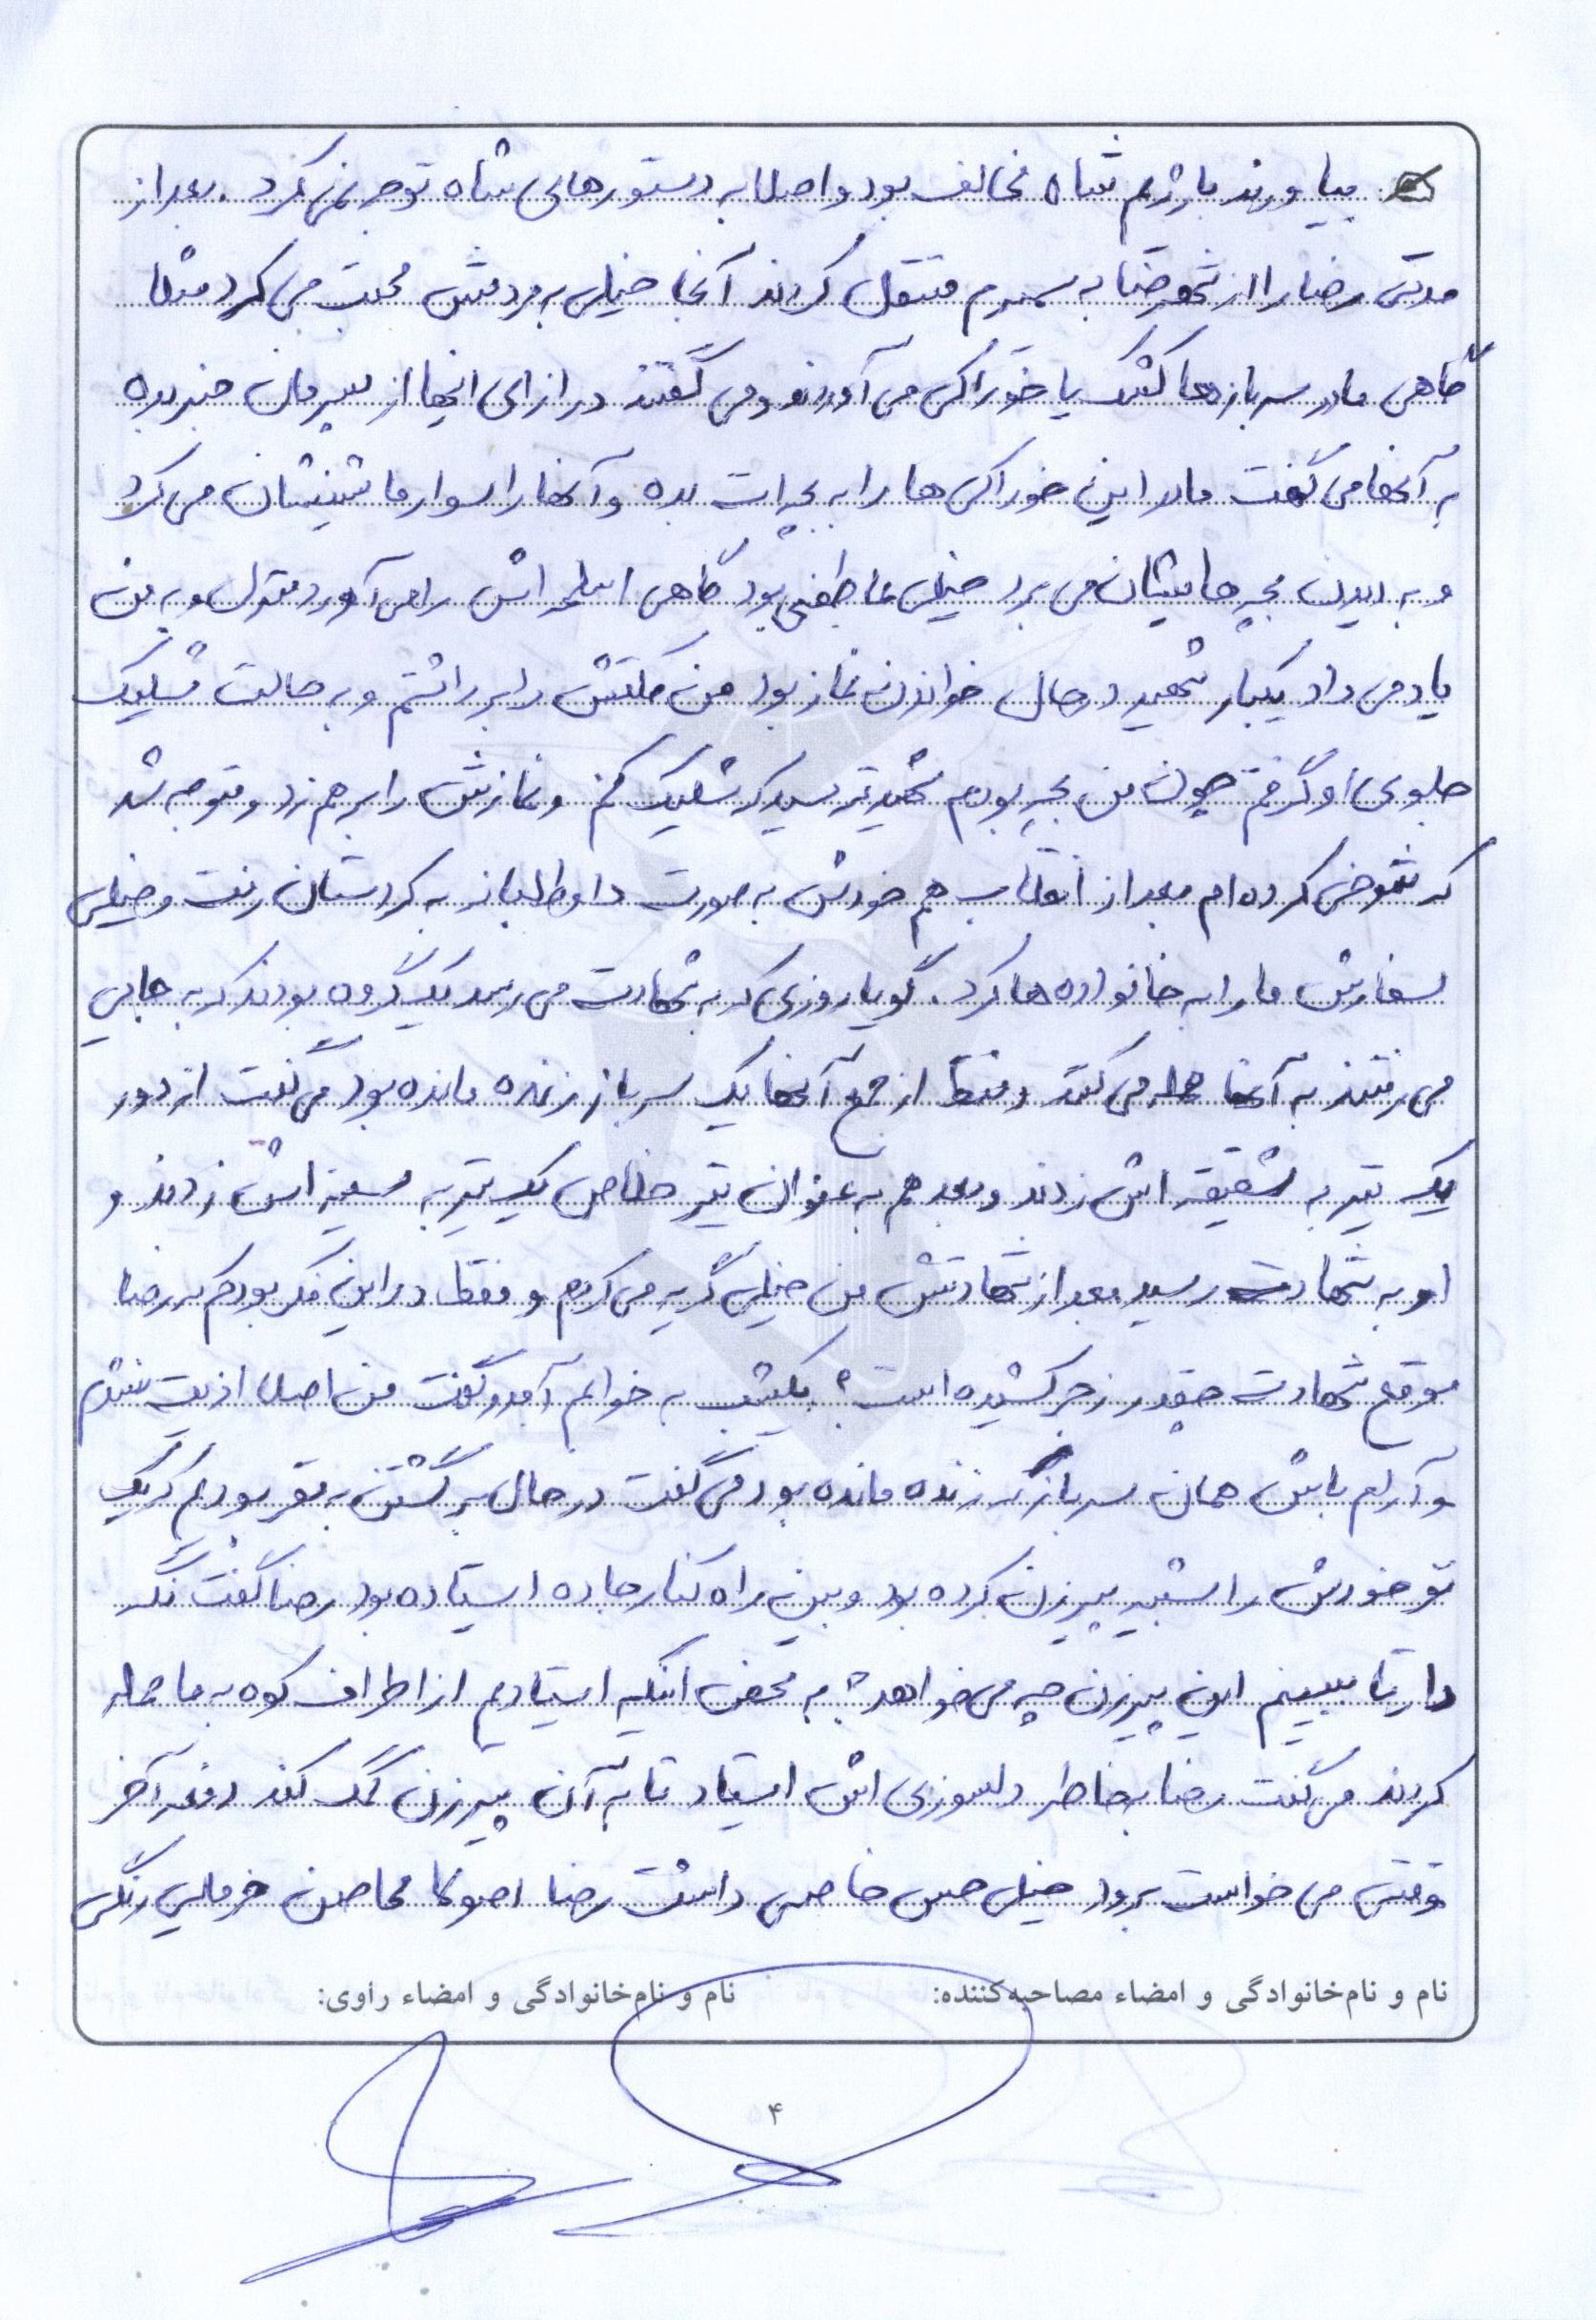 بیاورند با رژیم شاه مخالف بود و اصلا به دستورهای شاه توجه نمی کرد. بعد از
مدتی رضا را از شهرضا به سمیرم منتقل کردند آنجا خیلی به مردمش محبت می کرد مثلا
گاهی مادر سربازها کشک یا خوراکی می آوردند و می گفتند در ازای اینها از پسرمان خبر بده
به آنها می گفت مادر این خوراکی ها را به بچه ات بده و آنها را سوار ماشینشان می کرد
و به دیدن بچه هایشان می برد خیلی عاطفی بود گاهی اسلحه اش را می آورد منزل و به من
یاد می داد یکبار شهید در حال خواندن نماز بود من کلتش را برداشتم و به حالت شلیک
جلوی او گرفتم چون من بچه بودم شهید ترسید که شلیک کنم و نمازش را برهم زد و متوجه شد
که شوخی کرده ام بعد از انقلاب هم خودش به صورت داوطلبانه به کردستان رفت و خیلی
سفارش ما را به خانواده ها کرد. گویا روزی که به شهادت می رسد یک گروه بودند که به جایی
می رفتند به آنها حمله می کنند و فقط از جمع آنها یک سرباز زنده مانده بود می گفت از دور
یک تیر به شقیقه اش زدند و بعد هم به عنوان تیر خلاص یک تیر به سینه اش زدند و
او به شهادت رسید بعد از شهادتش من خیلی گریه می کردم و فقط در این فکر بودم که رضا
موقع شهادت چقدر زجر کشیده است؟ یکشب به خوابم آمد و گفت من اصلا اذیت نشدم
و آرام باش همان سرباز که زنده مانده بود می گفت در حال برگشتن به مقر بودیم که یک
نفر خودش را شبیه پیرزن کرده بود و بین راه کنار جاده ایستاده بود رضا گفت نگه
دار تا ببینیم این پیرزن چه می خواهد؟ به محض اینکه ایستادیم از اطراف کوه به ما حمله
کردند می گفت رضا بخاطر دلسوزی اش ایستاد تا به آن پیرزن کمک کند دفعه آخر
وقتی می خواست برود خیلی حس خاصی داشت رضا اصولا محاسن خرمایی رنگی
نام و نام‌خانوادگی و امضاء مصاحبه‌کننده: نام و نام‌خانوادگی و امضاء راوی:
۴